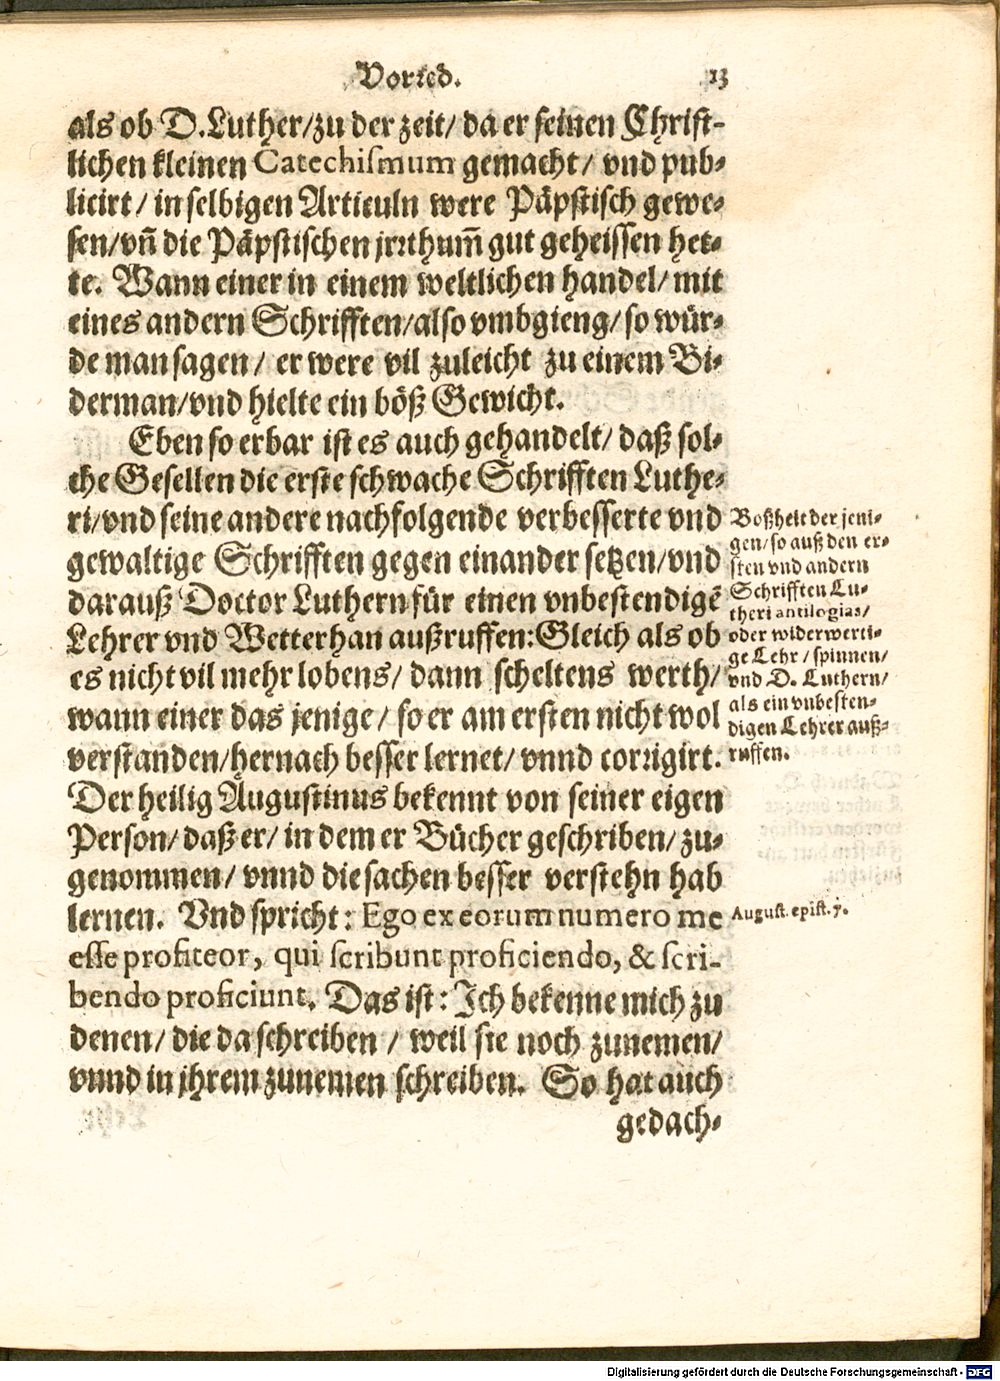 Vorred.
13
als ob D. Luther/zu der zeit/ da er seinen Christ-
lichen kleinen Catechiſmum gemacht/ vnd pub-
licirt/ in selbigen Articuln were Päpstisch gewe-
sen/vñ die Päpstischen jrrthum̃ gut geheissen het-
te. Wann einer in einem weltlichen handel/ mit
eines andern Schrifften/also vmbgieng/ so wür-
de man sagen/ er were vil zuleicht zu einem Bi-
derman/vnd hielte ein böß Gewicht.
Eben so erbar ist es auch gehandelt/ daß sol-
che Gesellen die erste schwache Schrifften Luthe-
ri/vnd seine andere nachfolgende verbesserte vnd
gewaltige Schrifften gegen einander setzen/vnd
darauß Doctor Luthern für einen vnbestendigē
Lehrer vnd Wetterhan außruffen: Gleich als ob
es nicht vil mehr lobens/ dann scheltens werth/
wann einer das jenige/ so er am ersten nicht wol
verstanden/hernach besser lernet/ vnnd corrigirt.
Der heilig Augustinus bekennt von seiner eigen
Person/ daß er/ in dem er Bücher geschriben/ zu-
genommen/ vnnd die sachen besser verstehn hab
lernen. Vnd spricht: Ego ex eorum numero me
eſſe profiteor, qui ſcribunt proficiendo, & ſcri-
bendo proficiunt. Das ist: Ich bekenne mich zu
denen/ die da schreiben / weil sie noch zunemen/
vnnd in jhrem zunemen schreiben. So hat auch
gedach-
Boßheit der jeni-
gen/ so auß den er-
sten vnd andern
Schrifften Lu-
theri antilogias/
oder widerwerti-
ge Lehr / spinnen/
vnd D. Luthern/
als ein vnbesten-
digen Lehrer auß-
ruffen.
August. epist. 7.
Digitalisierung gefördert durch die Deutsche Forschungsgemeinschaft - DFG